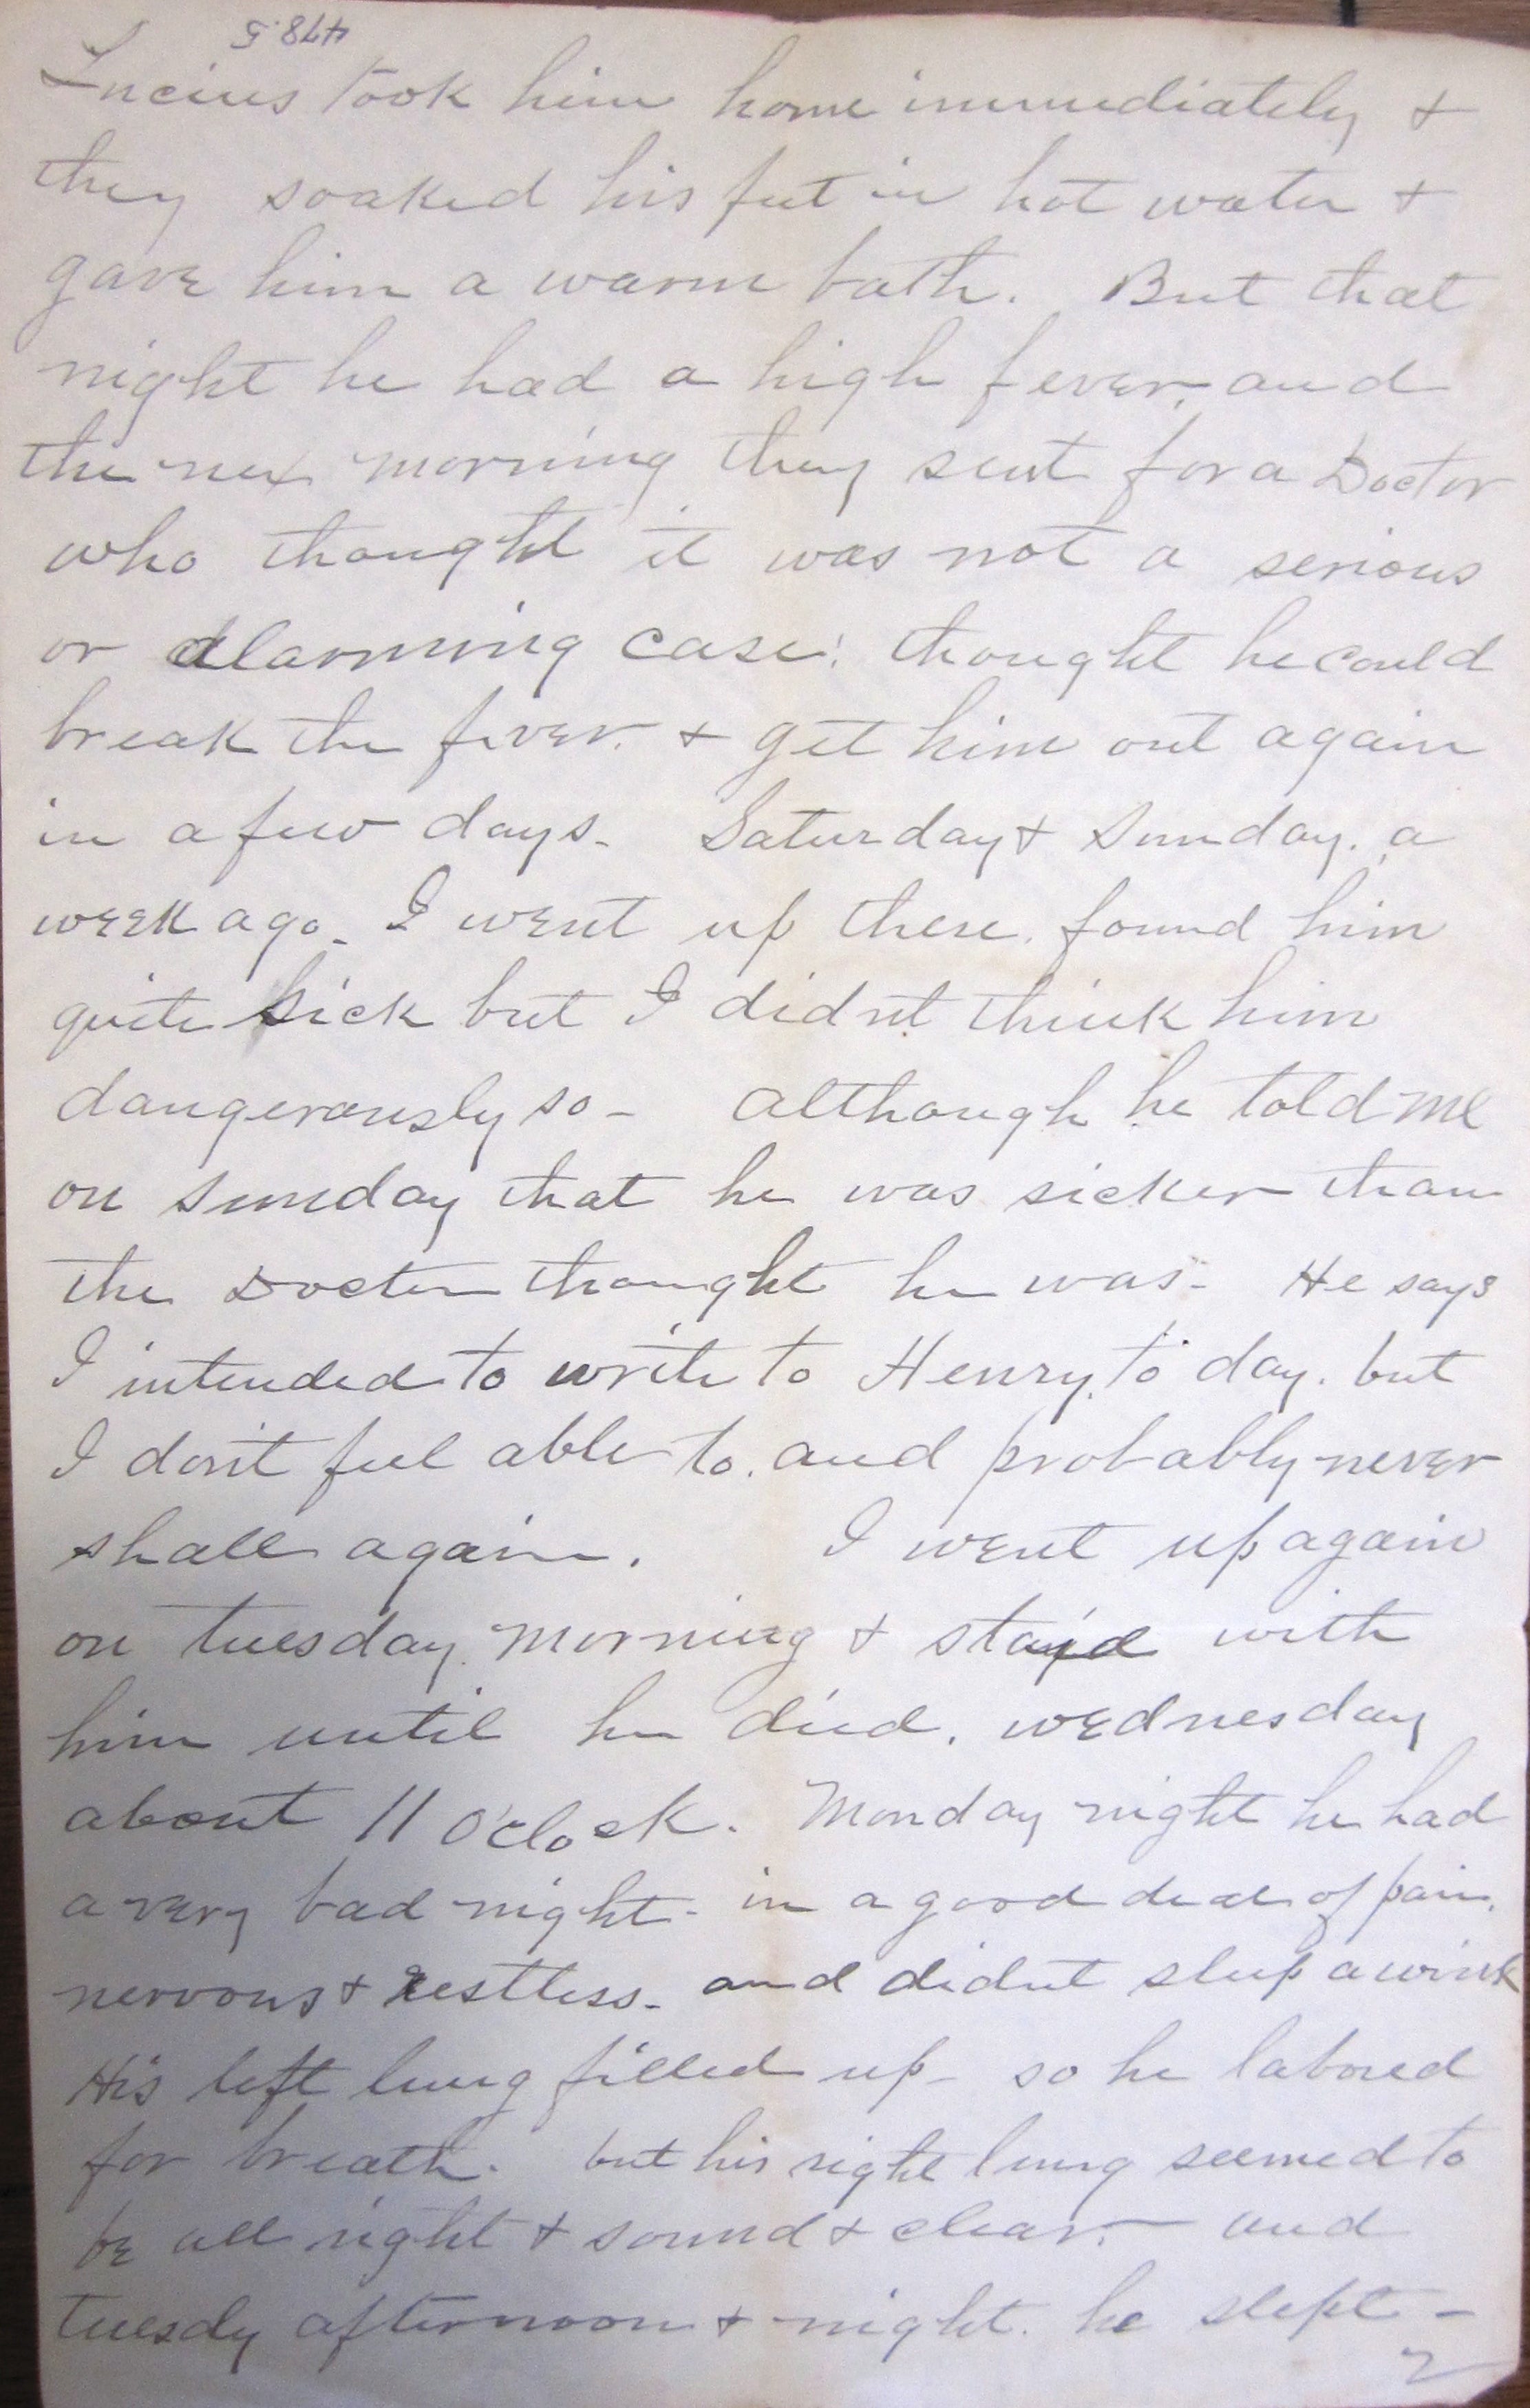 478.5
Lucius took him home immediately &
they soaked his feet in hot water &
gave him a warm bath. But that
night he had a high fever, and
the nex morning they sent for a Doctor
who thought it was not a serious
or alarming case: thought he could
break the fever. & get him out again
in a few days- Saturday & Sunday. a
week ago- I went up there. found him
quite sick but I didn't think him
dangerously so- although he told me
on Sunday that he was sicker than
the Doctor thought he was- He says
I intended to write to Henry, to day. but
I don't feel able to. and probably never
shall again. I went up again
on tuesday morning & stayd with
him until he died. wednesday
about 11 O'clock. Monday night he had
a very bad night- in a good deal of pain.
nervous & restless- and didnt sleep a wink
His left lung filled up- so he labored
for breath. but his right lung seemed to
be all right & sound & clear.- and
tuesdy afternoon & night. he slept -
2